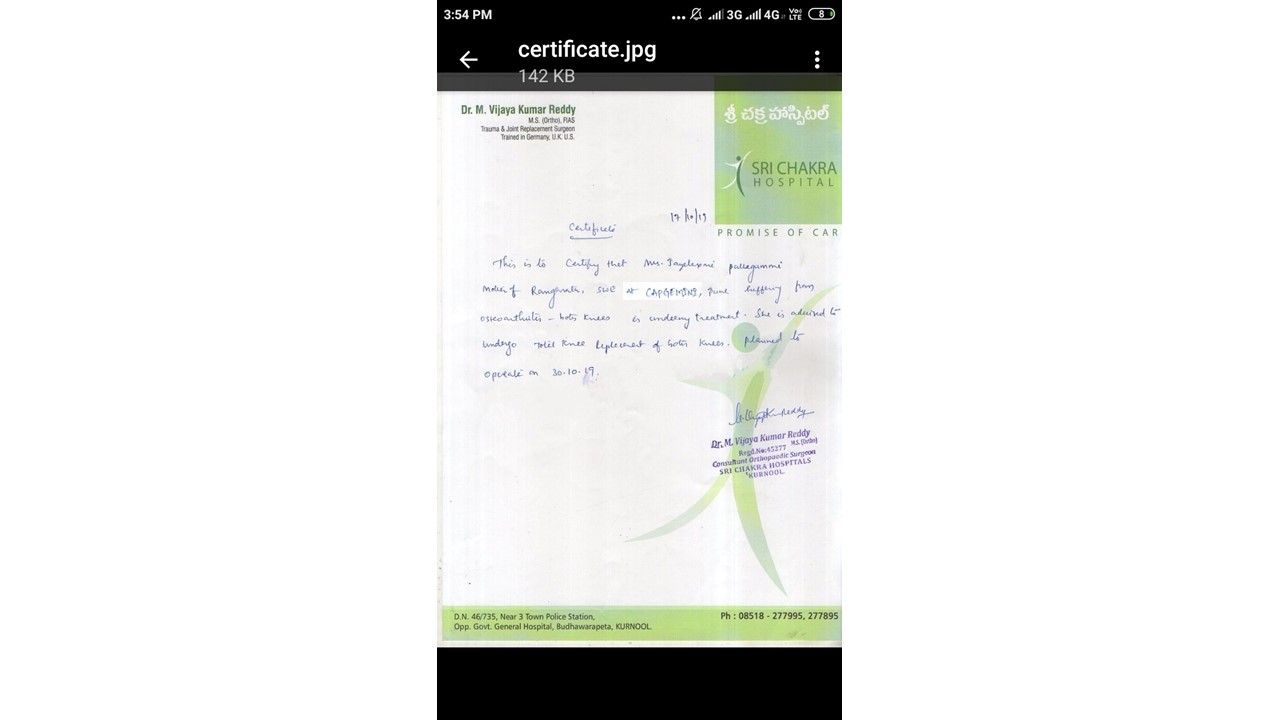 3:54 PM
... 3G 4G Vo)) LTE 8
certificate.jpg
142 KB
Dr. M. Vijaya Kumar Reddy
M.S. (Ortho), FIAS
Trauma & Joint Replacement Surgeon
Trained in Germany, U.K. U.S.
శ్రీ చక్ర హాస్పిటల్
SRI CHAKRA
HOSPITAL
PROMISE OF CAR
/10/19
Certificate
This is to Certify that Mrs.
Mother of at CAPGEMINI, suffering from
osteoarthritis - both Knees is undergoing treatment. She is advised to
undergo Total Knee Replacement of both Knees. planned to
operate on 30-10-19.
Dr. M. Vijaya Kumar Reddy
Regd.No:45277 M.S.(Ortho)
Consultant Orthopaedic Surgeon
SRI CHAKRA HOSPITALS
KURNOOL.
D.N. 46/735, Near 3 Town Police Station,
Opp. Govt. General Hospital, Budhawarapeta, KURNOOL.
Ph : 08518 - 277995, 277895